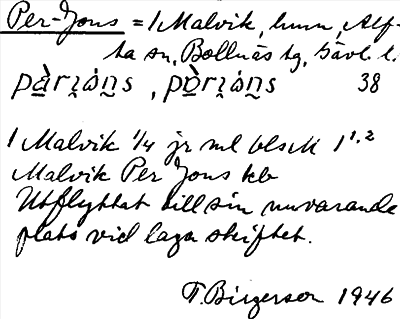 Per-Jons = 1 Malvik, hmn, Alf-
ta sn, Bollnäs tg, Gävl. l.
pàrɪ̯ó̱n̠s , pò̱rɪ̯ó̱n̠s 38
1 Malvik ¼ jr ml blsk 1¹·²
Malvik Per Jons kb
Utflyttat till sin nuvarande
plats vid laga skiftet.
F. Birgerson 1946